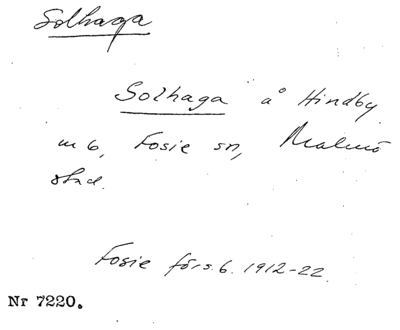 Solhaga
Solhaga å Hindby
m 6, Fosie sn, Malmö
stad.
Fosie förs.b. 1912-22.
Nr 7220.